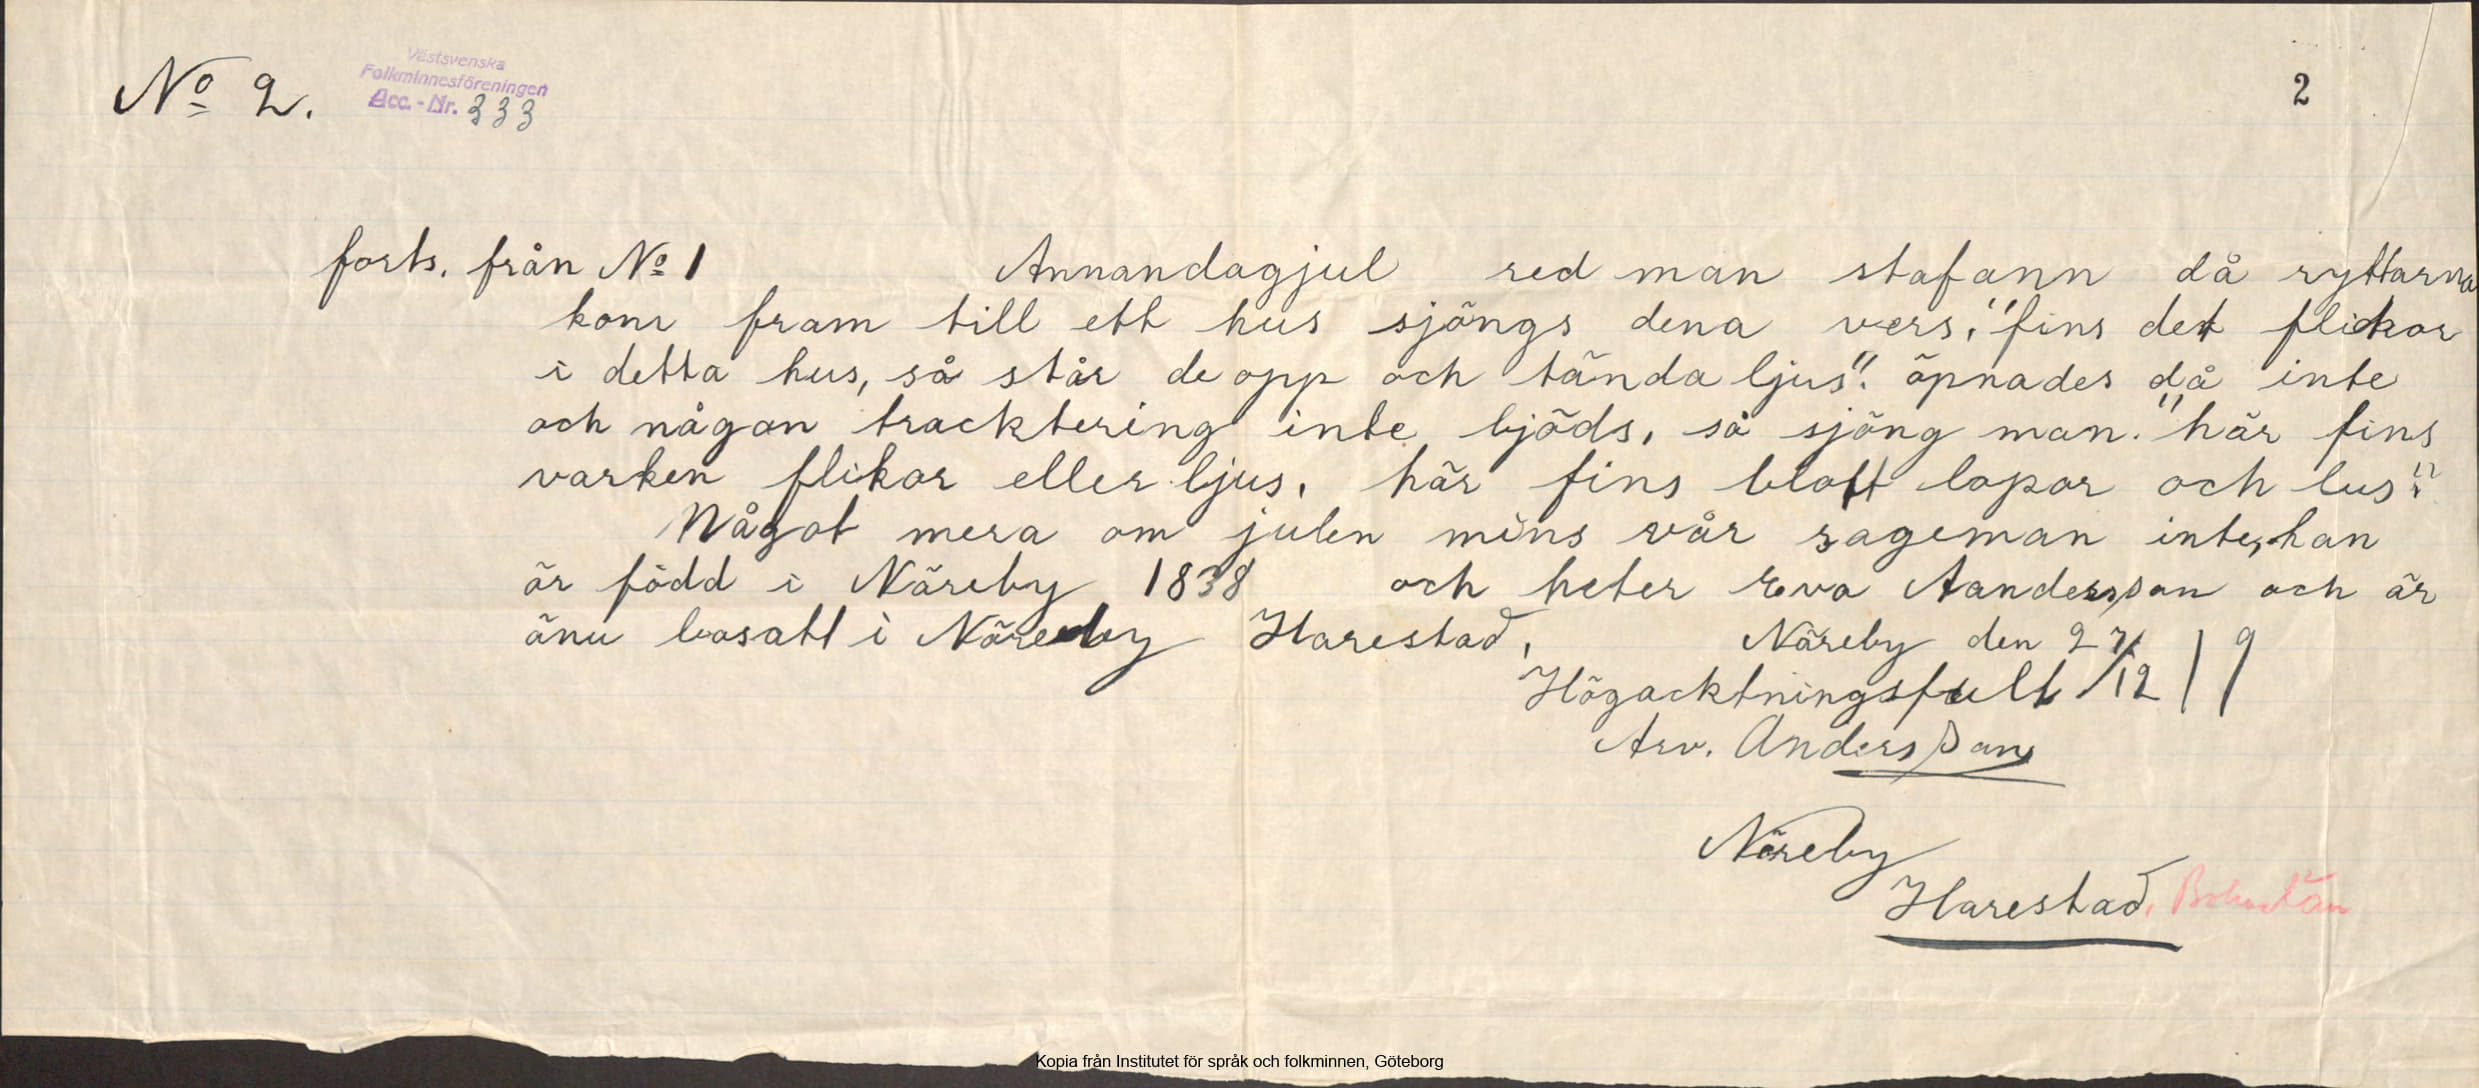 Nº 2.
Västsvenska
Folkminnesföreningen
Acc.-Nr. 333
2
forts. från Nº 1 Annandagjul red man stafann då ryttarna
kom fram till ett hus sjöngs dena vers. "fins det flickor
i detta hus, så står de opp och tända ljus". öpnades då inte
och någon tracktering inte bjöds, så sjöng man. "här fins
varken flikor eller ljus, här fins blott lopor och lus".
Något mera om julen mins vår sageman inte, han
är född i Näreby 1838 och heter Eva Aandersson och är
änu bosatt i Näreby Harestad, Näreby den 27/12 19
Högacktningsfullt
Arv. Andersson
Näreby
Harestad, Bohuslän
Kopia från Institutet för språk och folkminnen, Göteborg